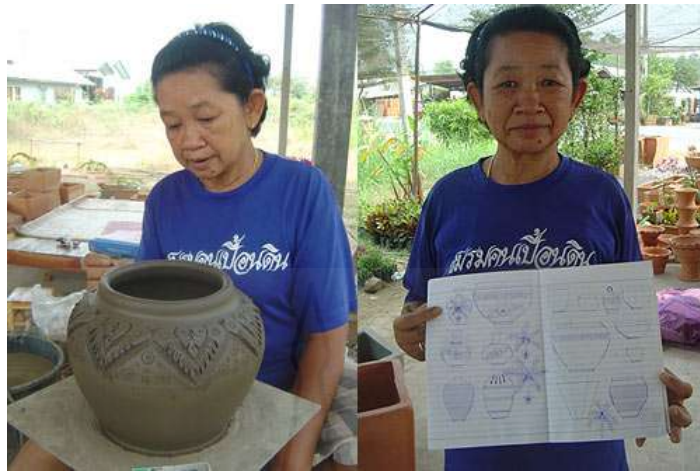 ชมรมคนเปื้อนดิน
ชมรมคนเปื้อนดิน